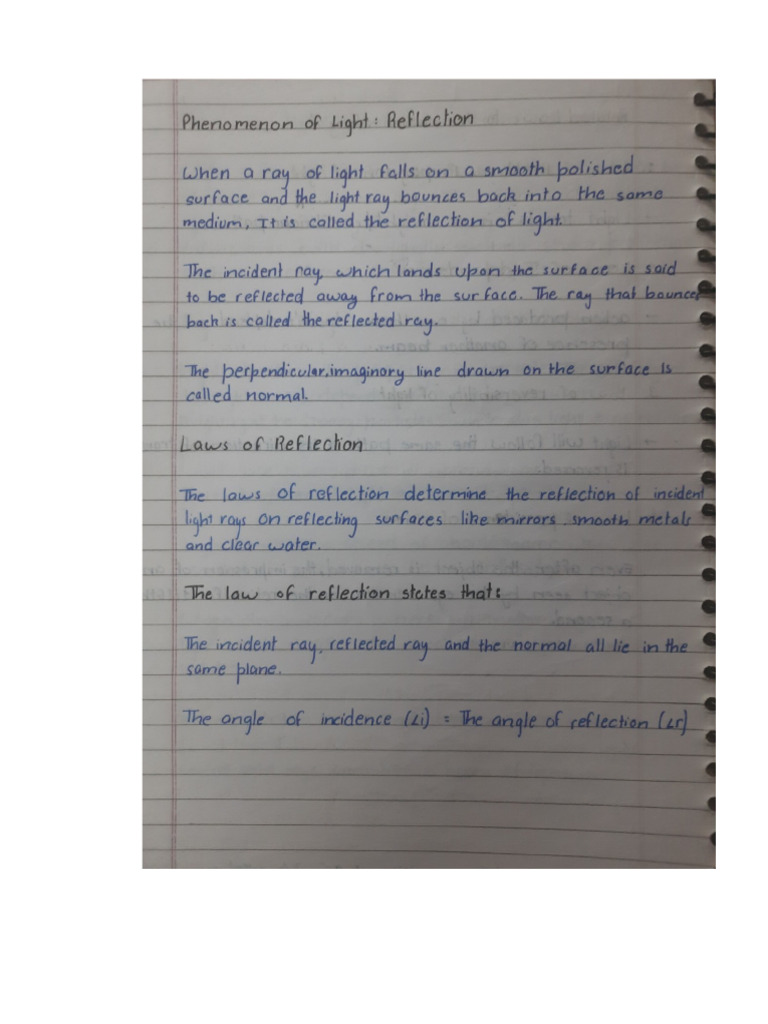 Phenomenon of Light: Reflection
When a ray of light falls on a smooth polished
surface and the light ray bounces back into the same
medium, It is called the reflection of light.
The incident ray, which lands upon the surface is said
to be reflected away from the surface. The ray that bounces
back is called the reflected ray.
The perpendicular, imaginory line drawn on the surface is
called normal.
Laws of Reflection
The laws of reflection determine the reflection of incident
light rays on reflecting surfaces like mirrors, smooth metals
and clear water.
The law of reflection states that:
The incident ray, reflected ray and the normal all lie in the
same plane.
The angle of incidence (∠i) = The angle of reflection (∠r)